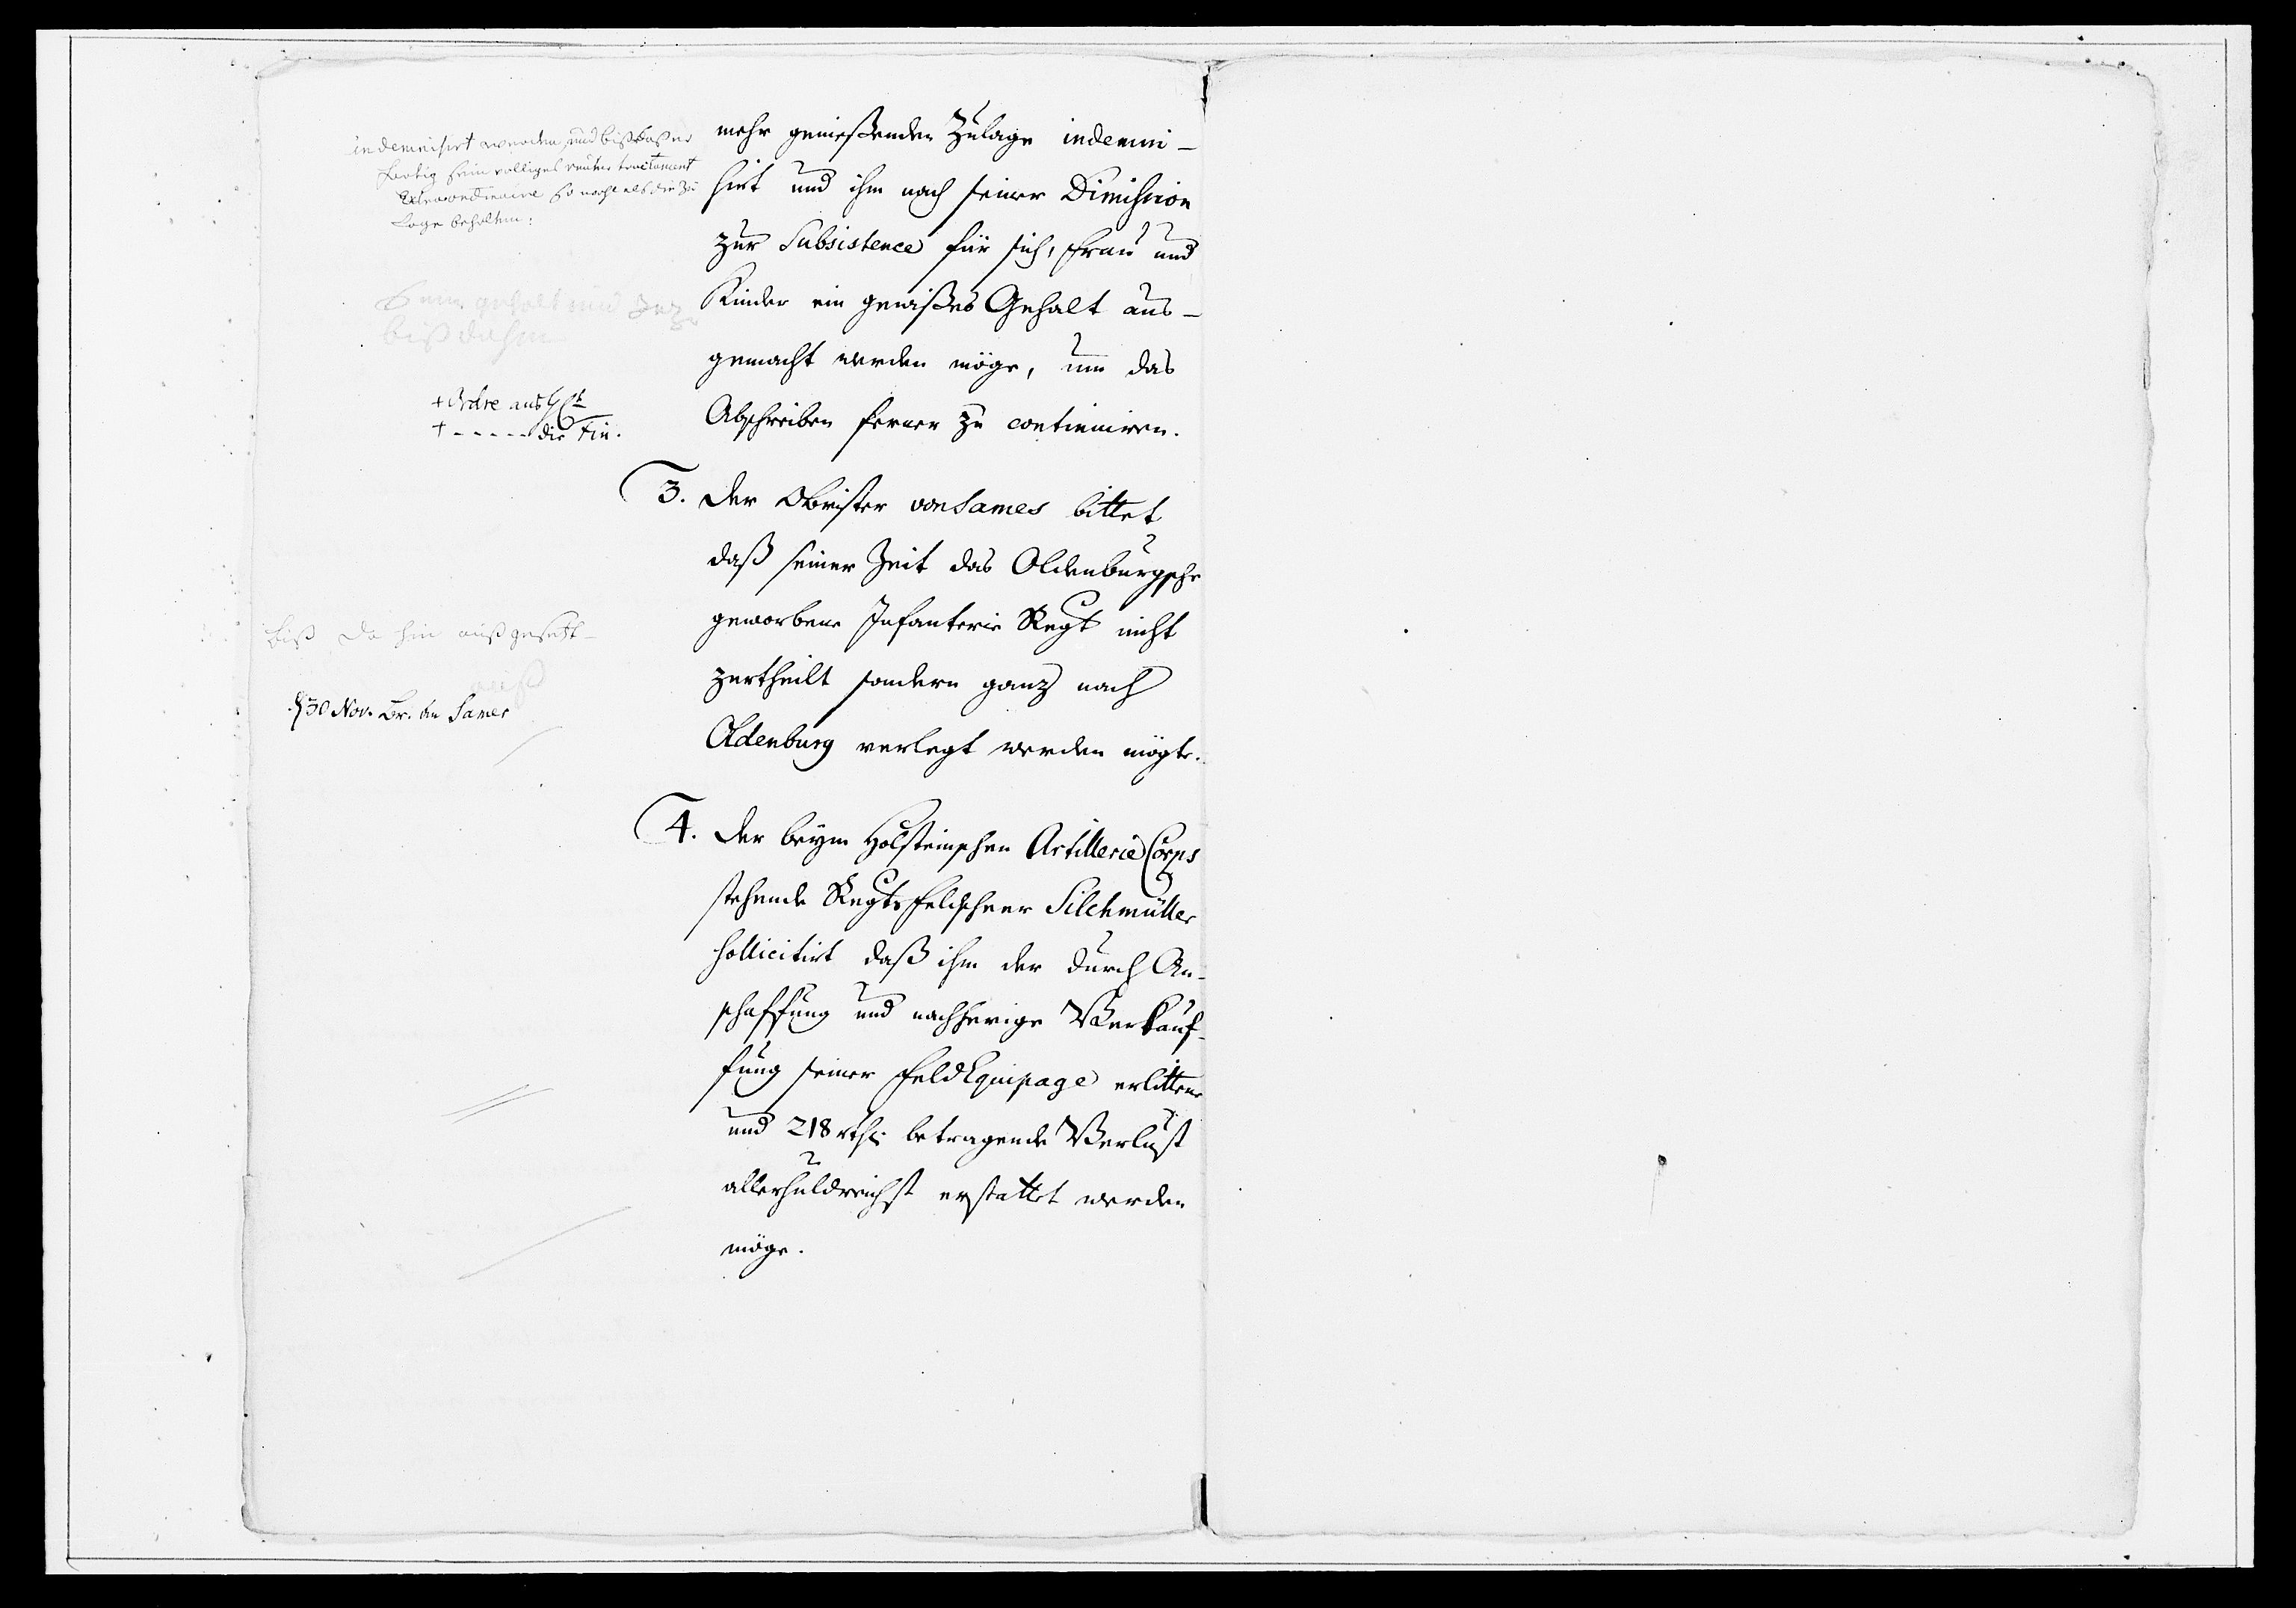 indemnisirt werden, und biß daß er
fertig sein völliges reuter tractament
Extraordinaire so wohl als die Zu
lage behalten:
gehalt und
biß dahin
+ Ordre ans
+ - - - - - die Fin.
biß da hin auß gesetzt
30 Nov. Br. an Sames
mehr genießenden Zulage indemni-
sirt und ihm nach seiner Dimission
zur Subsistence für sich, Frau und
Kinder ein gewißes Gehalt aus-
gemacht werden möge, um das
Abschreiben ferner zu continuiren.
3. Der Obrister von Sames bittet
daß seiner Zeit das Oldenburgsche
geworbene Infanterie Regt nicht
zertheilt sondern ganz nach
Oldenburg verlegt werden mögte.
4. Der beym Holsteinschen Artillerie Corps
stehende Regts Feldscheer Silchmüller
sollicitirt daß ihm der durch An-
schaffung und nachherige Verkauf-
fung seiner Feld Equipage erlittene
und 218 rthl. betragende Verlust
allerhuldreichst erstattet werden
möge.